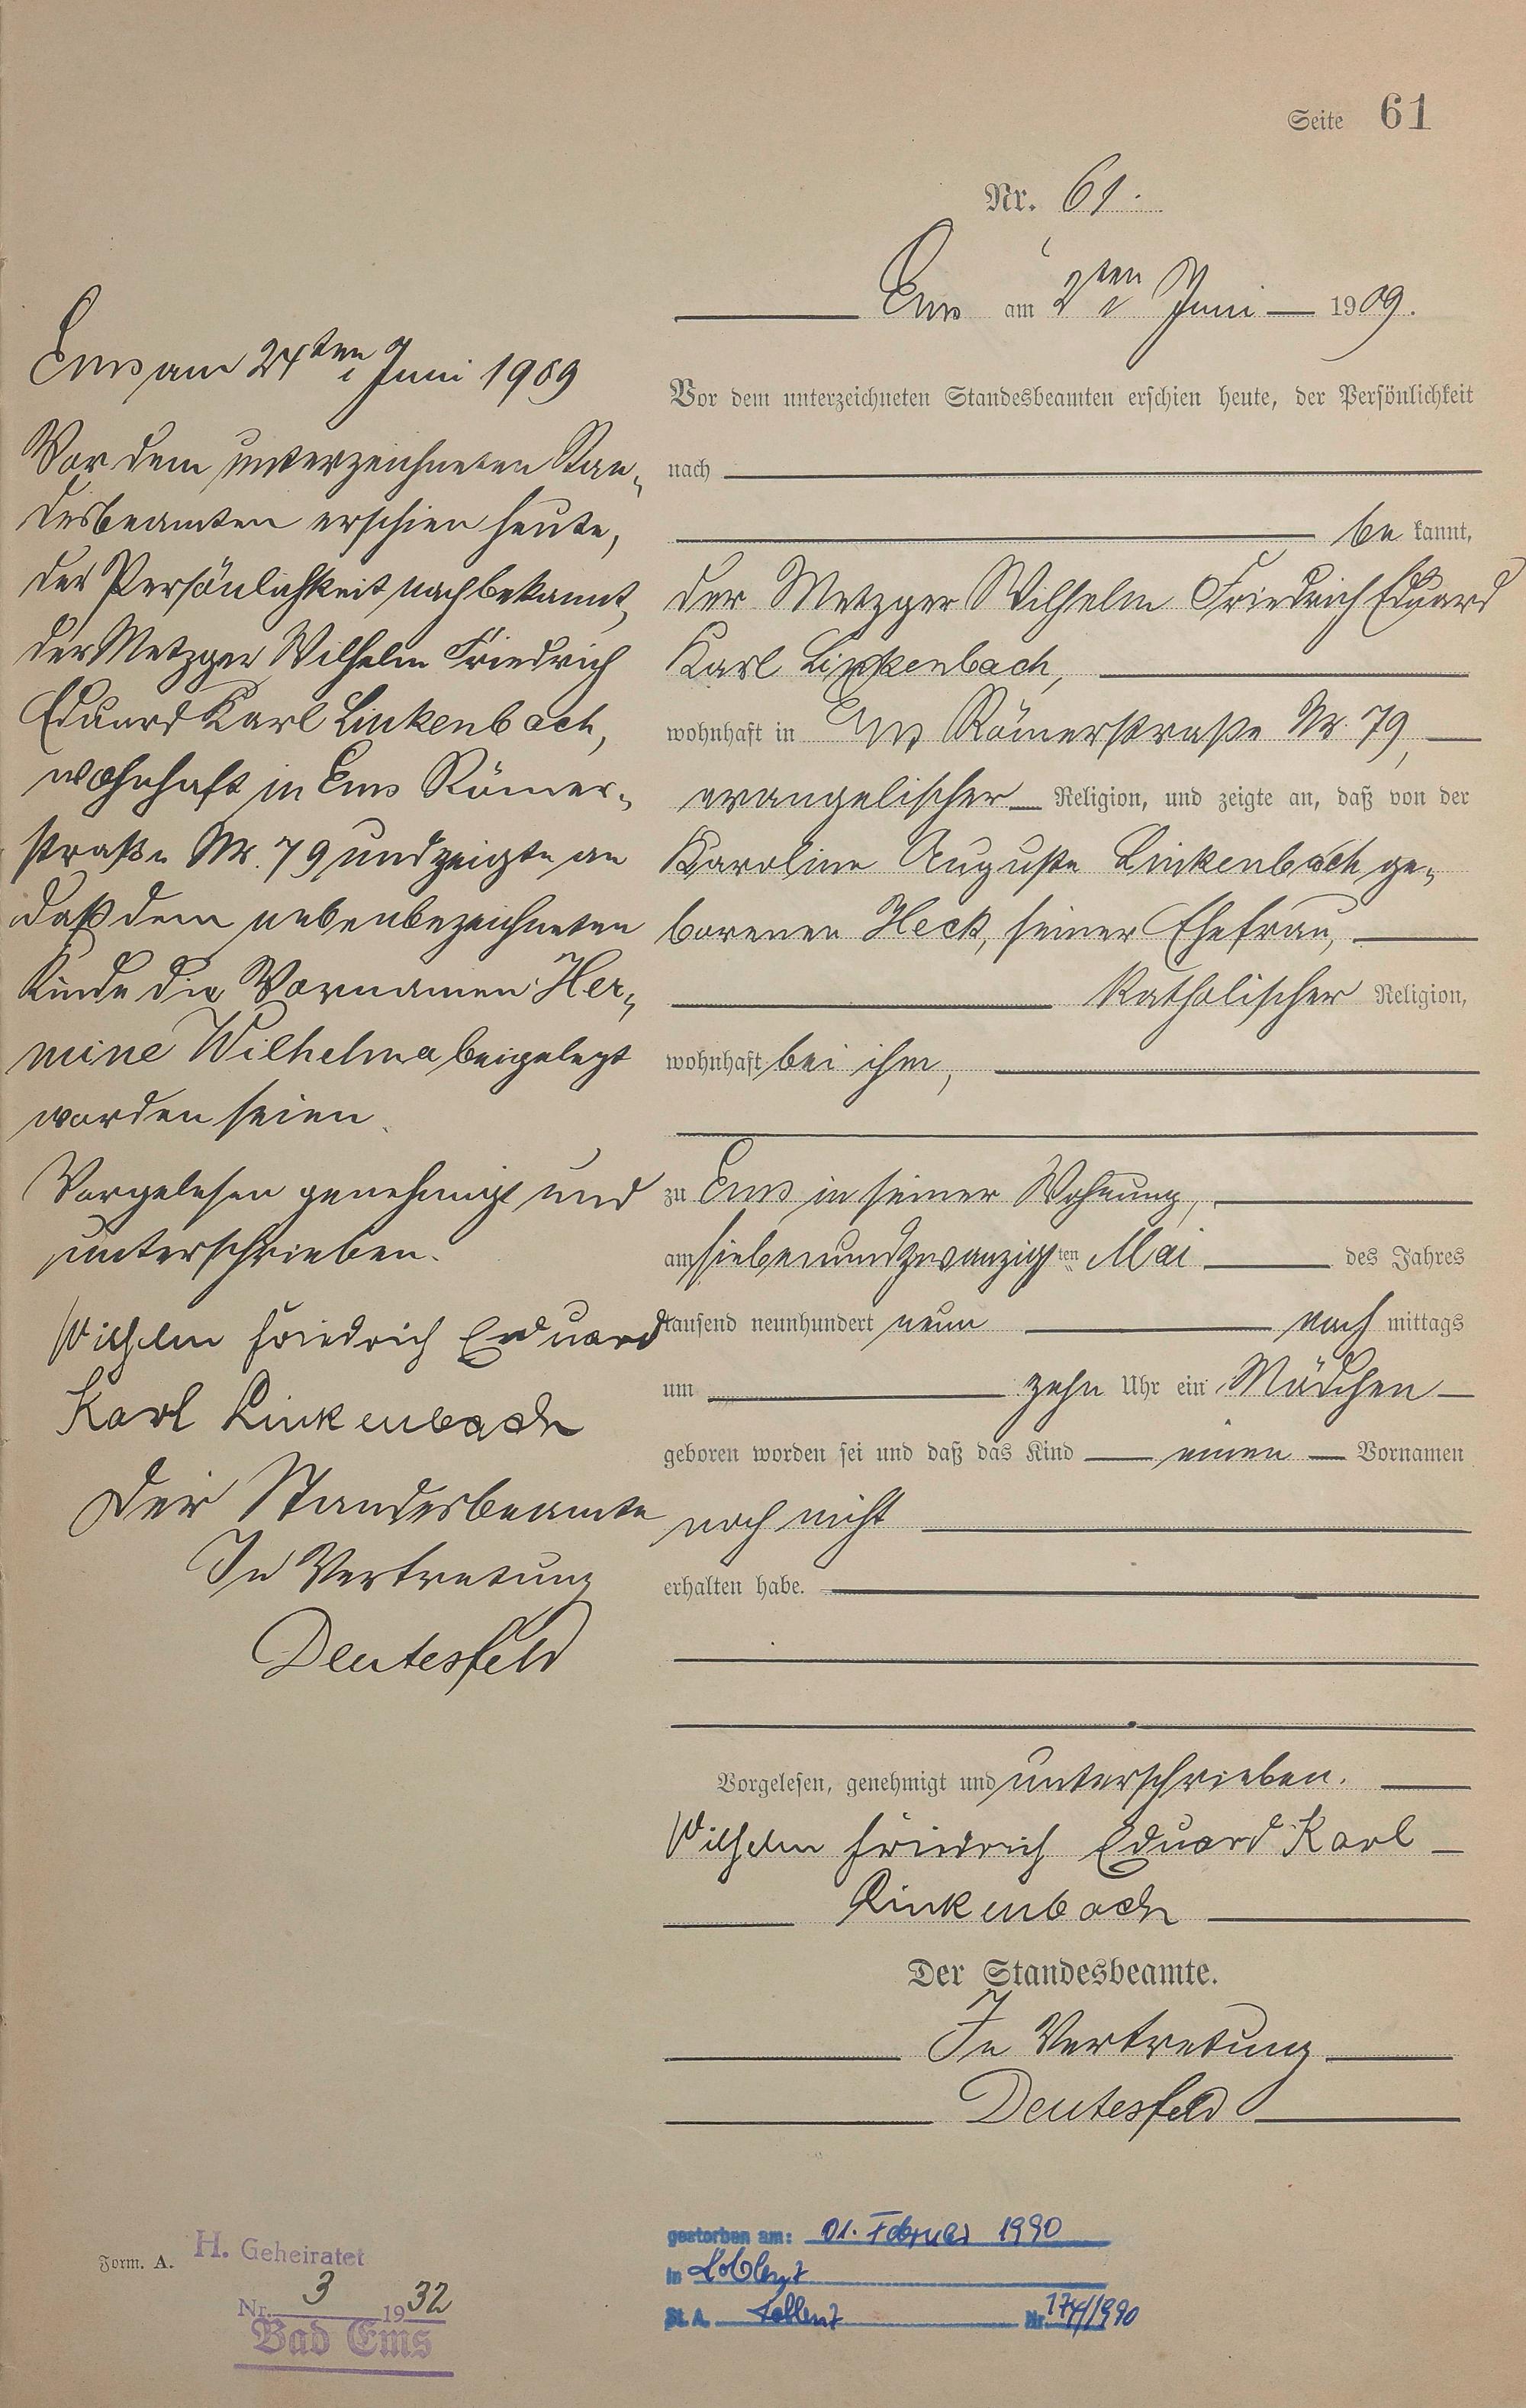 Seite 61
Nr. 61.
Ems am 2ten Juni 1909.
Vor dem unterzeichneten Standesbeamten erschien heute, der Persönlichkeit
nach
be kannt,
der Metzger Wilhelm Friedrich Eduard
Karl Linkenbach,
wohnhaft in Ems Römerstraße Nr. 79,
evangelischer Religion, und zeigte an, daß von der
Karoline Auguste Linkenbach ge„
borenen Heck, seiner Ehefrau,
katholischer Religion,
wohnhaft bei ihm,
zu Ems in seiner Wohnung,
am siebenundzwanzigsten Mai des Jahres
tausend neunhundert neun nach mittags
um zehn Uhr ein Mädchen
geboren worden sei und daß das Kind einen Vornamen
noch nicht
erhalten habe.
Vorgelesen, genehmigt und unterschrieben.
Wilhelm Friedrich Eduard Karl
Linkenbach
Der Standesbeamte.
In Vertretung
Deutesfeld
Ems am 24ten Juni 1909
Vor dem unterzeichneten Stan„
desbeamten erschien heute,
der Persönlichkeit nach bekannt,
der Metzger Wilhelm Friedrich
Eduard Karl Linkenbach,
wohnhaft in Ems Römer„
straße Nr. 79 und zeigte an
daß dem nebenbezeichneten
Kinde die Vornamen Her„
mine Wilhelma beigelegt
worden seien.
Vorgelesen genehmigt und
unterschrieben.
Wilhelm Friedrich Eduard
Karl Linkenbach
Der Standesbeamte
In Vertretung
Deutesfeld
Form. A.
H. Geheiratet
Nr. 3 1932
Bad Ems
gestorben am: 01. Februar 1990
in Koblenz
St. A. Koblenz Nr. 174/1990